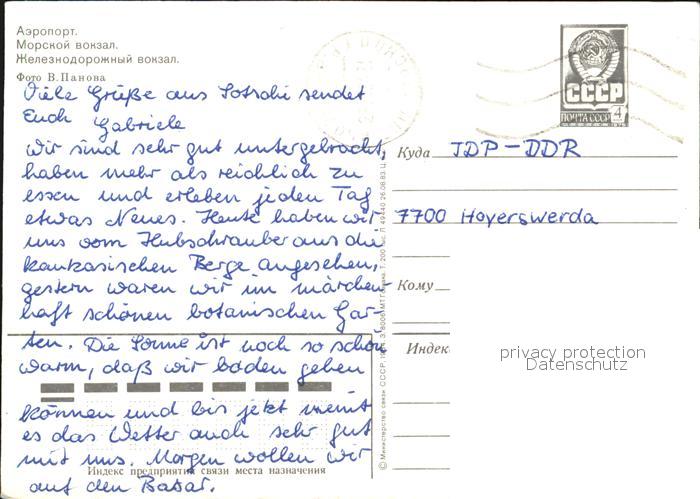 Аэропорт.
Морской вокзал.
Железнодорожный вокзал.
Фото В.Панова
Viele Grüße aus Sotschi sendet
Euch Gabriele
Wir sind sehr gut untergebracht,
haben mehr als reichlich zu
essen und erleben jeden Tag
etwas Neues. Heute haben wir
uns vom Hubschrauber aus die
kaukasischen Berge angesehen,
gestern waren wir im märchen-
haft schönen botanischen Gar-
ten. Die Sonne ist noch so schön
warm, daß wir baden gehen
können und bis jetzt meint
es das Wetter auch sehr gut
mit uns. Morgen wollen wir
auf den Basar.
Индекс предприятия связи места назначения
© Министерство связи СССР
СССР
ПОЧТА СССР 4
Куда JDP-DDR
7700 Hoyerswerda
Кому
Индекс
privacy protection
Datenschutz